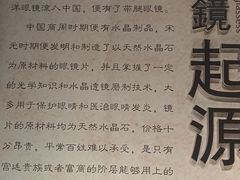 洋眼鏡流入中国，便有了带腿眼镜。
中国商周时期便有水晶制品，宋
元时期便发明和制造了以天然水晶石
为原材料的眼镜片，并且掌握了一定
的光学知识和水晶透镜磨制技术，大
多用于保护眼睛和医治眼睛发炎，镜
片的原材料均为天然水晶石，价格十
分昂贵，平常百姓难以承受，是只有
宫廷贵族或者富商的阶层能够用上的
鏡
起源